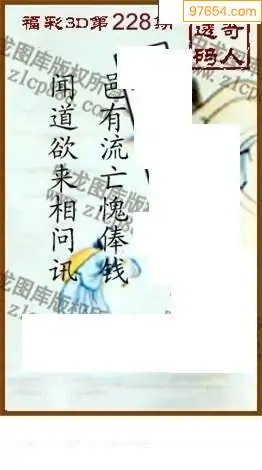 97654.com
福彩3D第228期
透奇
码人
邑有流亡愧俸钱
闻道欲来相问讯
龙图库版权所
www.zlcp
龙图库版权所
zlcp